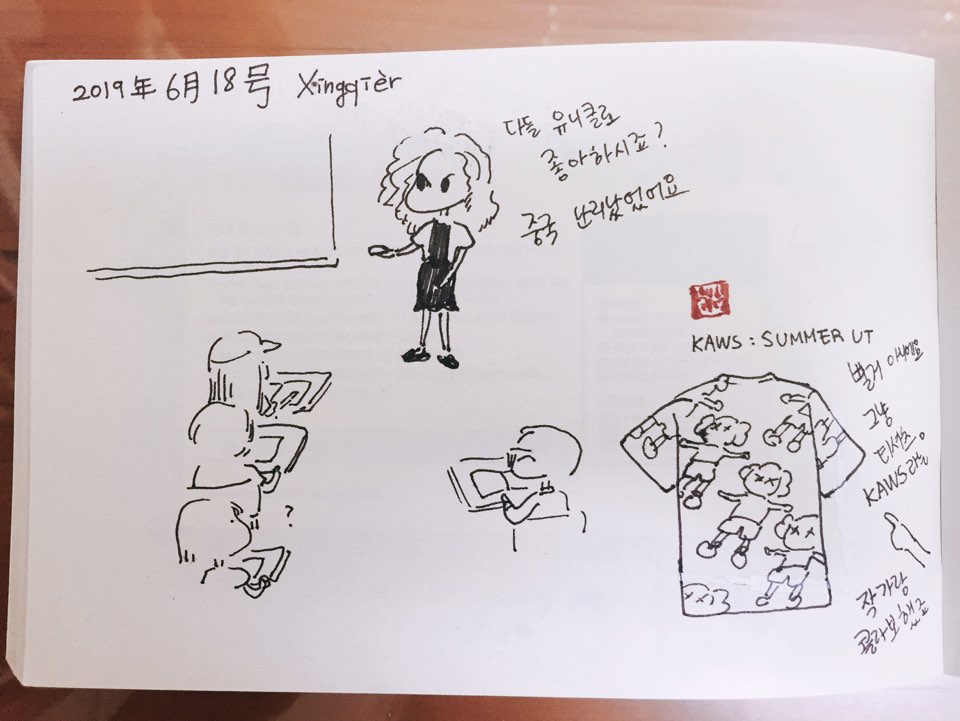 2019年 6月 18号 Xīngqīèr
다들 유니클로
좋아하시죠?
중국 난리났었어요
?
KAWS : SUMMER UT
별거 아녜요
그냥
티셔츠
KAWS라는
작가랑
콜라보했죠